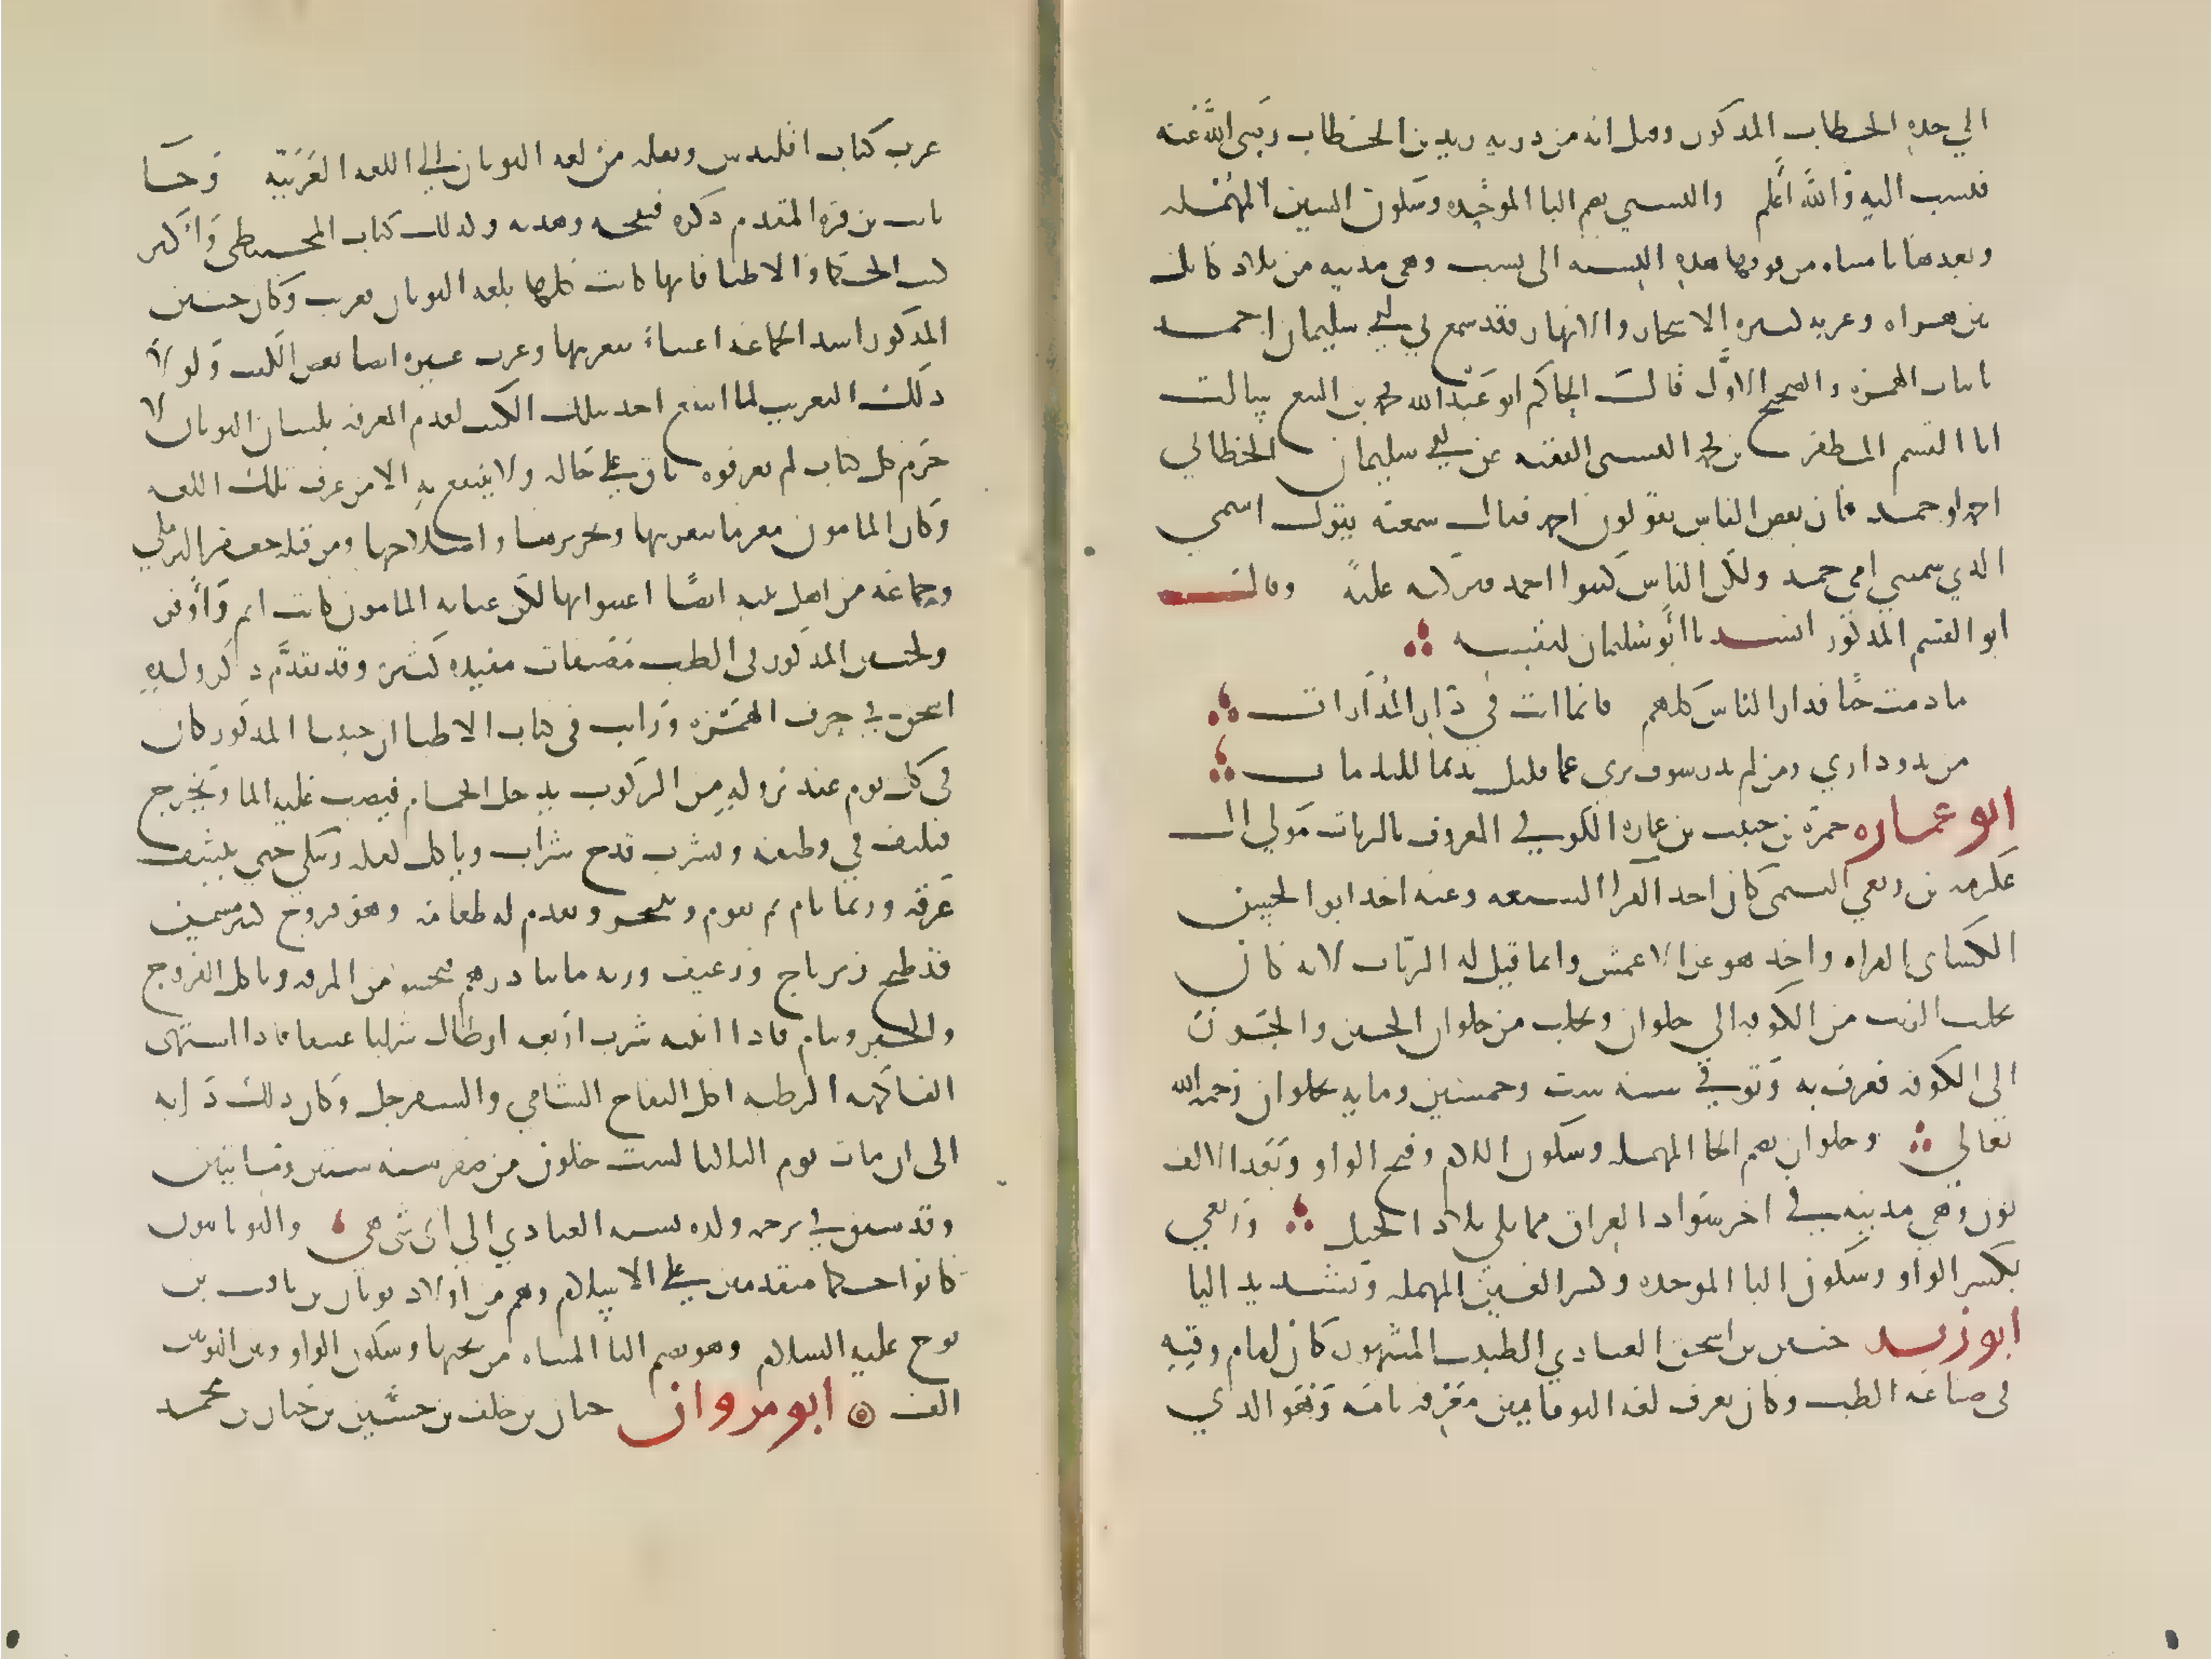 الي جده الخطاب المذكور وقيل انه من ذرية زيد بن الخطاب رضي الله عنه
فنسب اليه والله اعلم والبستي بضم البا الموحده وسكون السين المهمله
وبعدها تا مثناه من فوقها هذه النسبه الى بست وهي مدينه من بلاد كابل
بين هراه وغزنه كثيره الاشجار والانهار وقد سمع في ابي سليمان احمد
باثبات الهمزه والصحيح الاول قال الحاكم ابو عبد الله محمد بن البيع سالت
ابا القسم المظفر بن محمد البستي الفقيه عن ابي سليمان الخطابي
احمد او حمد فان بعض الناس يقولون احمد فقال سمعته يقول اسمي
الذي سميت به حمد ولكن الناس كتبوا احمد فتركته عليه وقال
ابو القسم المذكور انشدنا ابو سليمان لنفسه
ما دمت حيا فدار الناس كلهم فانما انت في دار المدارات
من يدر داري ومن لم يدر سوف يرى عما قليل نديما للندامات
ابو عماره حمزة بن حبيب بن عماره الكوفي المعروف بالزيات مولي ال
عكرمه بن ربعي التيمي كان احد القرا السبعه وعنه اخذ ابو الحسن
الكساي القراه واخذ هو عن الاعمش وانما قيل له الزيات لانه كان
يجلب الزيت من الكوفه الي حلوان ويجلب من حلوان الجبن والجوز
الى الكوفه فعرف به وتوفي سنه ست وخمسين ومايه بحلوان رحمه الله
تعالي وحلوان بضم الحا المهمله وسكون اللام وفتح الواو وبعد الالف
نون وهي مدينه في اخر سواد العراق مما يلي بلاد الجبل وربعي
بكسر الواو وسكون البا الموحده وكسر العين المهمله وتشديد اليا
ابو زيد حنين بن اسحق العبادي الطبيب المشهور كان امام وقته
في صناعه الطب وكان يعرف لغه اليونانيين معرفه تامه وهو الذي
عرب كتاب اقليدس ونقله من لغه اليونان الى اللغه العربيه وجا
ثابت بن قره المقدم ذكره فنقحه وهذبه وكذلك كتاب المجسطي واكثر
كتب الحكما والاطبا فانها كانت كلها بلغه اليونان فعربت وكان حنين
المذكور اشد الجماعه اعتناء بتعريبها وعرب غيره ايضا بعض الكتب ولولا
ذلك التعريب لما انتفع احد بتلك الكتب لعدم المعرفه بلسان اليونان لا
جرم كل كتاب لم يعرفوه باق على حاله ولا ينتفع به الا من عرف تلك اللغه
وكان المامون مغرما بتعريبها وتحريرها واصلاحها ومن قبله جعفر البرمكي
وجماعه من اهل بيته ايضا اعتنوا بها لكن عنايه المامون كانت اتم واوفر
ولحنين المذكور في الطب مصنفات مفيده كثيره وقد تقدم ذكر ولده
اسحق في حرف الهمزه ورايت في كتاب الاطبا ان حنينا المذكور كان
في كل يوم عند نزوله من الركوب يدخل الحمام فيصب عليه الما ويخرج
فيلتف في قطيفه ويشرب قدح شراب وياكل كعكه ويتكي حتي ينشف
عرقه وربما نام ثم يقوم ويتبخر ويقدم له طعامه وهو فروج كبير مسمن
قد طبخ زيرباج ورغيف وزنه مايتا درهم فيحسو من المرقه وياكل الفروج
والخبز وينام فاذا انتبه شرب اربعه ارطال شرابا عتيقا فاذا اشتهى
الفاكهه الرطبه اكل التفاح الشامي والسفرجل وكان ذلك دابه
الى ان مات يوم الثلاثا لست خلون من صفر سنه ستين ومايتين
وقد سبق في ترجمه ولده نسبه العبادي الي اي شي هي واليونانيون
كانوا حكما متقدمين على الاسلام وهم من اولاد يونان بن يافث بن
نوح عليه السلام وهو بضم اليا المثناه من تحتها وسكون الواو وبين النونين
الف ابو مروان حيان بن خلف بن حسين بن حيان بن محمد